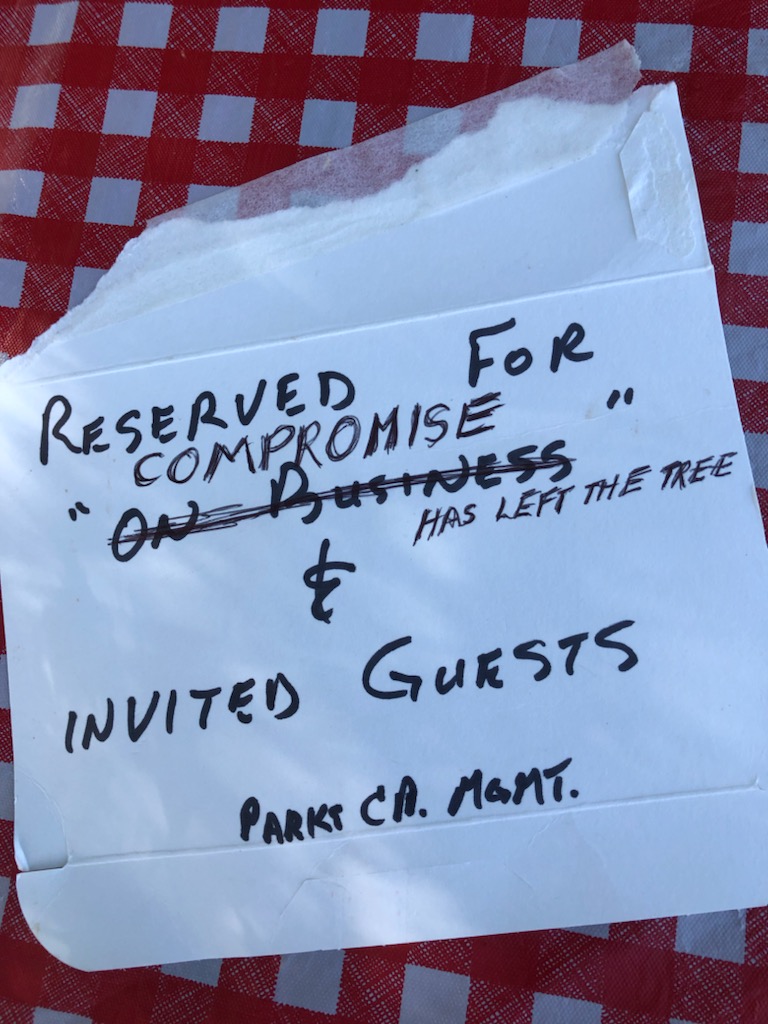 RESERVED FOR
COMPROMISE
" ON BUSINESS "
HAS LEFT THE TREE
&
INVITED GUESTS
MGMT.